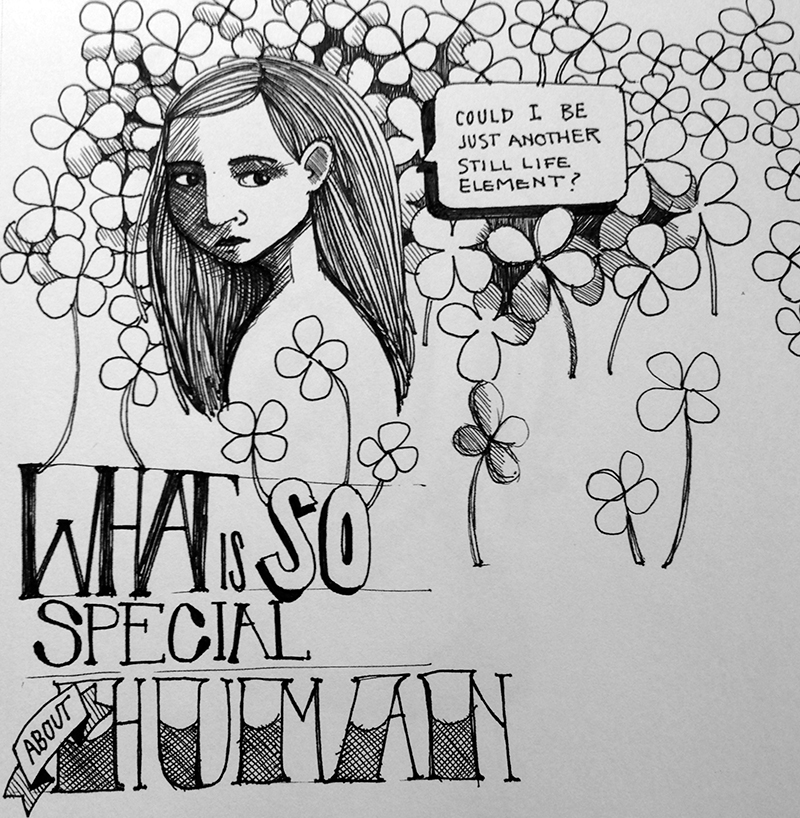 COULD I BE
JUST ANOTHER
STILL LIFE
ELEMENT?
WHAT IS SO
SPECIAL
ABOUT HUMAN